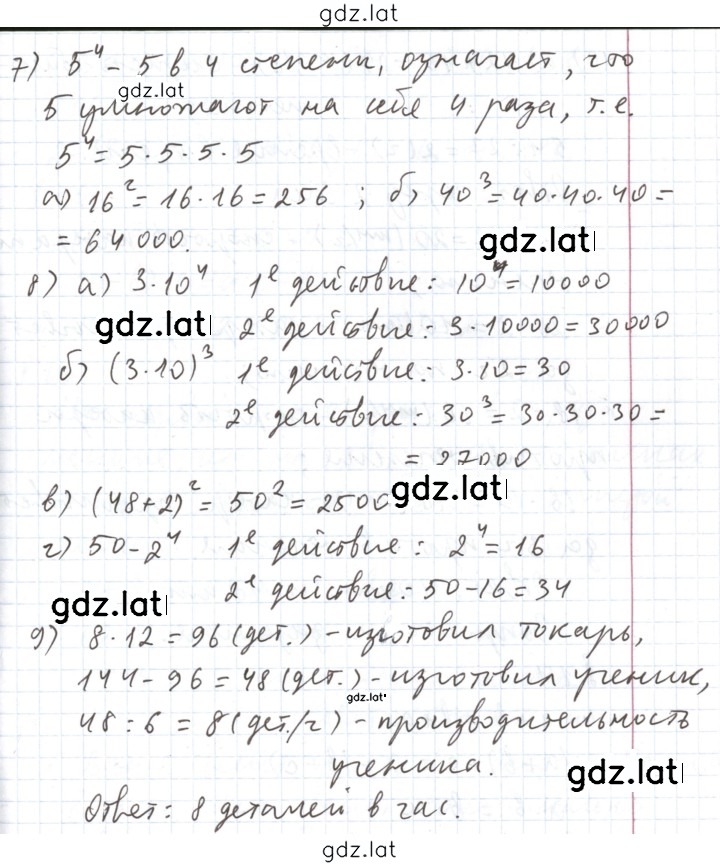 gdz.lat
7) 5⁴ – 5 в 4 степени, означает, что
gdz.lat
5 умножают на себя 4 раза, т.е.
5⁴ = 5 · 5 · 5 · 5
а) 16² = 16 · 16 = 256 ; б) 40³ = 40 · 40 · 40 =
= 64 000.
gdz.lat
8) а) 3 · 10⁴ 1е действие: 10⁴ = 10000
gdz.lat
2е действие: 3 · 10000 = 30000
б) (3 · 10)³ 1е действие: 3 · 10 = 30
2е действие: 30³ = 30 · 30 · 30 =
= 27000
в) (48+2)² = 50² = 2500
gdz.lat
г) 50 – 2⁴ 1е действие: 2⁴ = 16
2е действие: 50 – 16 = 34
gdz.lat
9) 8 · 12 = 96 (дет.) – изготовил токарь,
144 – 96 = 48 (дет.) – изготовил ученик,
gdz.lat
48 : 6 = 8 (дет./ч) – производительность
ученика.
gdz.lat
Ответ: 8 деталей в час.
gdz.lat